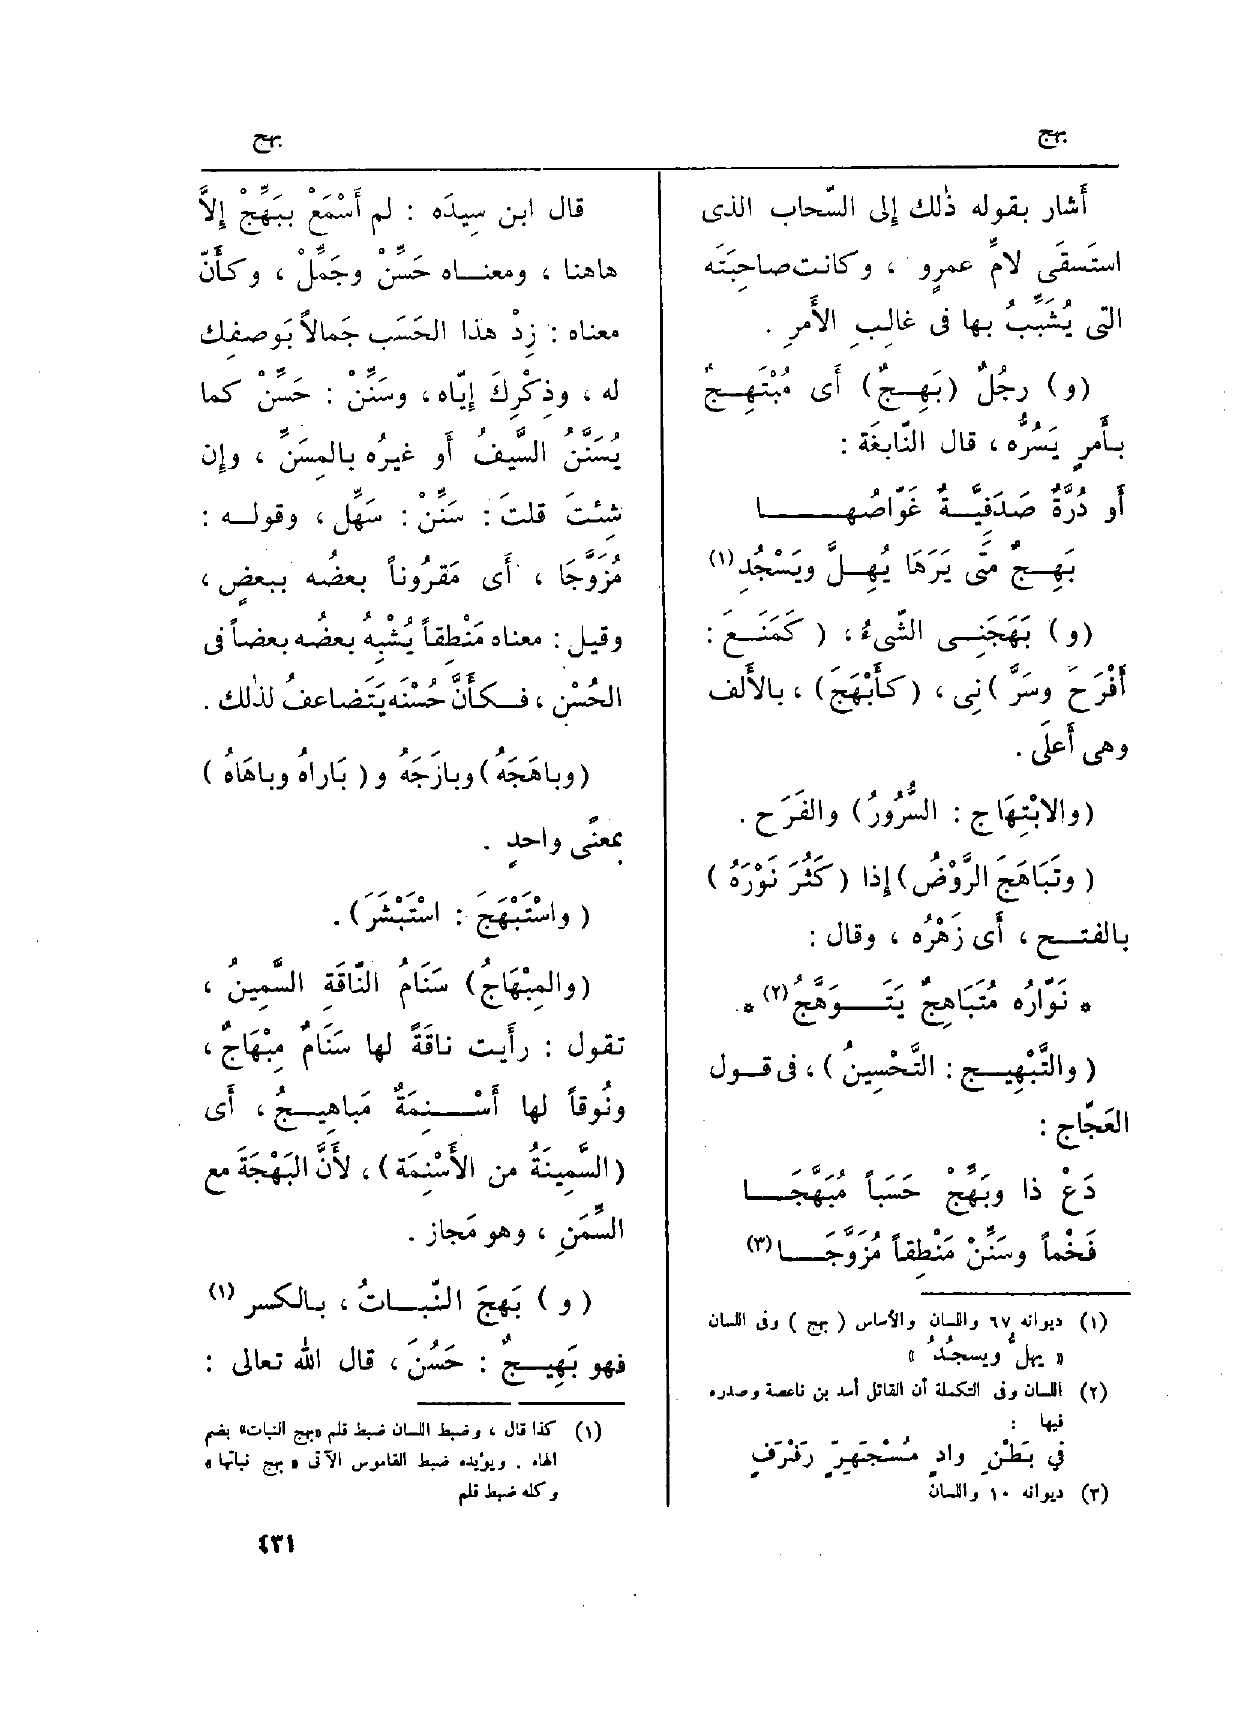 بهج
بهج
أشار بقوله ذٰلك إلى السّحاب الذى
استسقَى لامِّ عمرٍو ، وكانت صاحِبَتَه
التى يُشَبِّبُ بها فى غالِبِ الأَمرِ .
(و) رجُلٌ (بَهِجٌ) أَى مُبْتَهِجٌ
بأَمرٍ يَسُرُّه ، قال النّابغَة :
أَو دُرَّةٌ صَدَفِيَّةٌ غَوّاصُها
بَهِجٌ مَتَى يَرَهَا يُهِلَّ ويَسْجُدِ (١)
(و) بَهَجَنِى الشَّىءُ ، ( كَمَنَعَ :
أَفْرَحَ وسَرَّ )نِى ، (كأَبْهَجَ) ، بالأَلف
وهى أَعلَى .
(والابْتِهَاج : السُّرُورُ) والفَرَح .
( وتَبَاهَجَ الرَّوْضُ)إِذا (كَثُرَ نَوْرُهُ )
بالفتح ، أَى زَهْرُه ، وقال :
* نَوّارُه مُتَباهِجٌ يَتَوَهَّجُ (٢) *
( والتَّبْهِيج : التَّحْسِينُ ) ، فى قول
العَجّاج :
دَعْ ذا وبَهِّجْ حَسَباً مُبَهَّجَا
فَخْماً وسَنِّنْ مَنْطِقاً مُزَوَّجَا (٣)
(١) ديوانه ٦٧ واللسان والأساس ( بهج ) وفى اللسان
« يهلُّ ويسجدُ »
(٢) اللسان وفى التكملة أن القائل أسد بن ناعصة وصدره
فيها :
في بَطْنِ وادٍ مُسْجَهِرٍّ رَفْرَفٍ
(٣) ديوانه ١٠ واللسان
قال ابن سِيدَه : لم أَسْمَعْ بِبَهِّجْ إِلاَّ
هاهنا ، ومعناه حَسِّنْ وجَمِّلْ ، وكأَنّ
معناه : زِدْ هذا الحَسَب جَمالاً بَوصفِك
له ، وذِكْرِكَ إِيّاه ، وسَنِّنْ : حَسِّنْ كما
يُسَنَّنُ السَّيفُ أَو غيرُه بالمِسَنِّ ، وإِن
شِئتَ قلتَ : سَنِّنْ : سَهِّلْ ، وقوله :
مُزَوَّجَا ، أَى مَقرُوناً بعضُه ببعضٍ ،
وقيل : معناه مَنْطِقاً يُشْبِهُ بعضُه بعضاً فى
الحُسْنِ ، فكأَنَّ حُسْنَه يَتَضاعفُ لذلك .
(وباهَجَهُ) وبازَجَهُ و( بَاراهُ وباهَاهُ )
بمعنًى واحدٍ .
( واسْتَبْهَجَ : اسْتَبْشَرَ ) .
(والمِبْهَاجُ) سَنَامُ النّاقَةِ السَّمِينُ ،
تقول : رأَيت ناقَةً لها سَنَامٌ مِبْهَاجٌ ،
ونُوقاً لها أَسْنِمَةٌ مَباهِيجُ ، أَى
(السَّمِينَةُ من الأَسْنِمَة) ، لأَنَّ البَهْجَةَ مع
السِّمَنِ ، وهو مَجاز .
( و ) بَهِجَ النّبَاتُ ، بالكسر (١)
فهو بَهِيجٌ : حَسُنَ ، قال الله تعالى :
(١) كذا قال ، وضبط اللسان ضبط قلم «بهج النبات» بضم
الهاء . ويؤيده ضبط القاموس الآتى « بهج نباتها »
وكله ضبط قلم
٤٣١